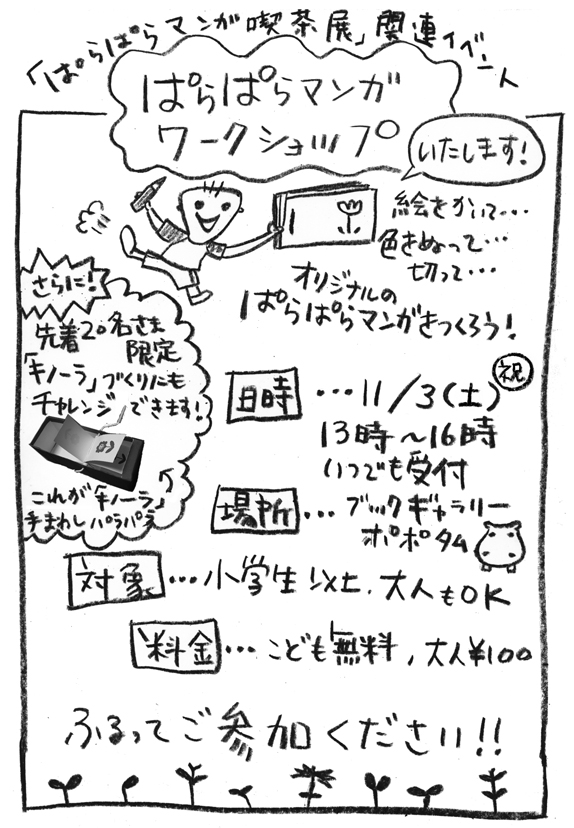 「ぱらぱらマンガ喫茶展」関連イベント
ぱらぱらマンガ
ワークショップ
いたします!
絵をかいて・・・
色をぬって・・・
切って・・・
オリジナルの
ぱらぱらマンガをつくろう!
さらに!
先着20名さま
限定
「キノーラ」づくりにも
チャレンジできます!
これが「キノーラ」
手まわしパラパラ
日時・・・11/3(土)祝
13時〜16時
いつでも受付
場所・・・ブックギャラリー
ポポタム
対象・・・小学生以上、大人もOK
料金・・・こども無料、大人¥100
ふるってご参加ください!!